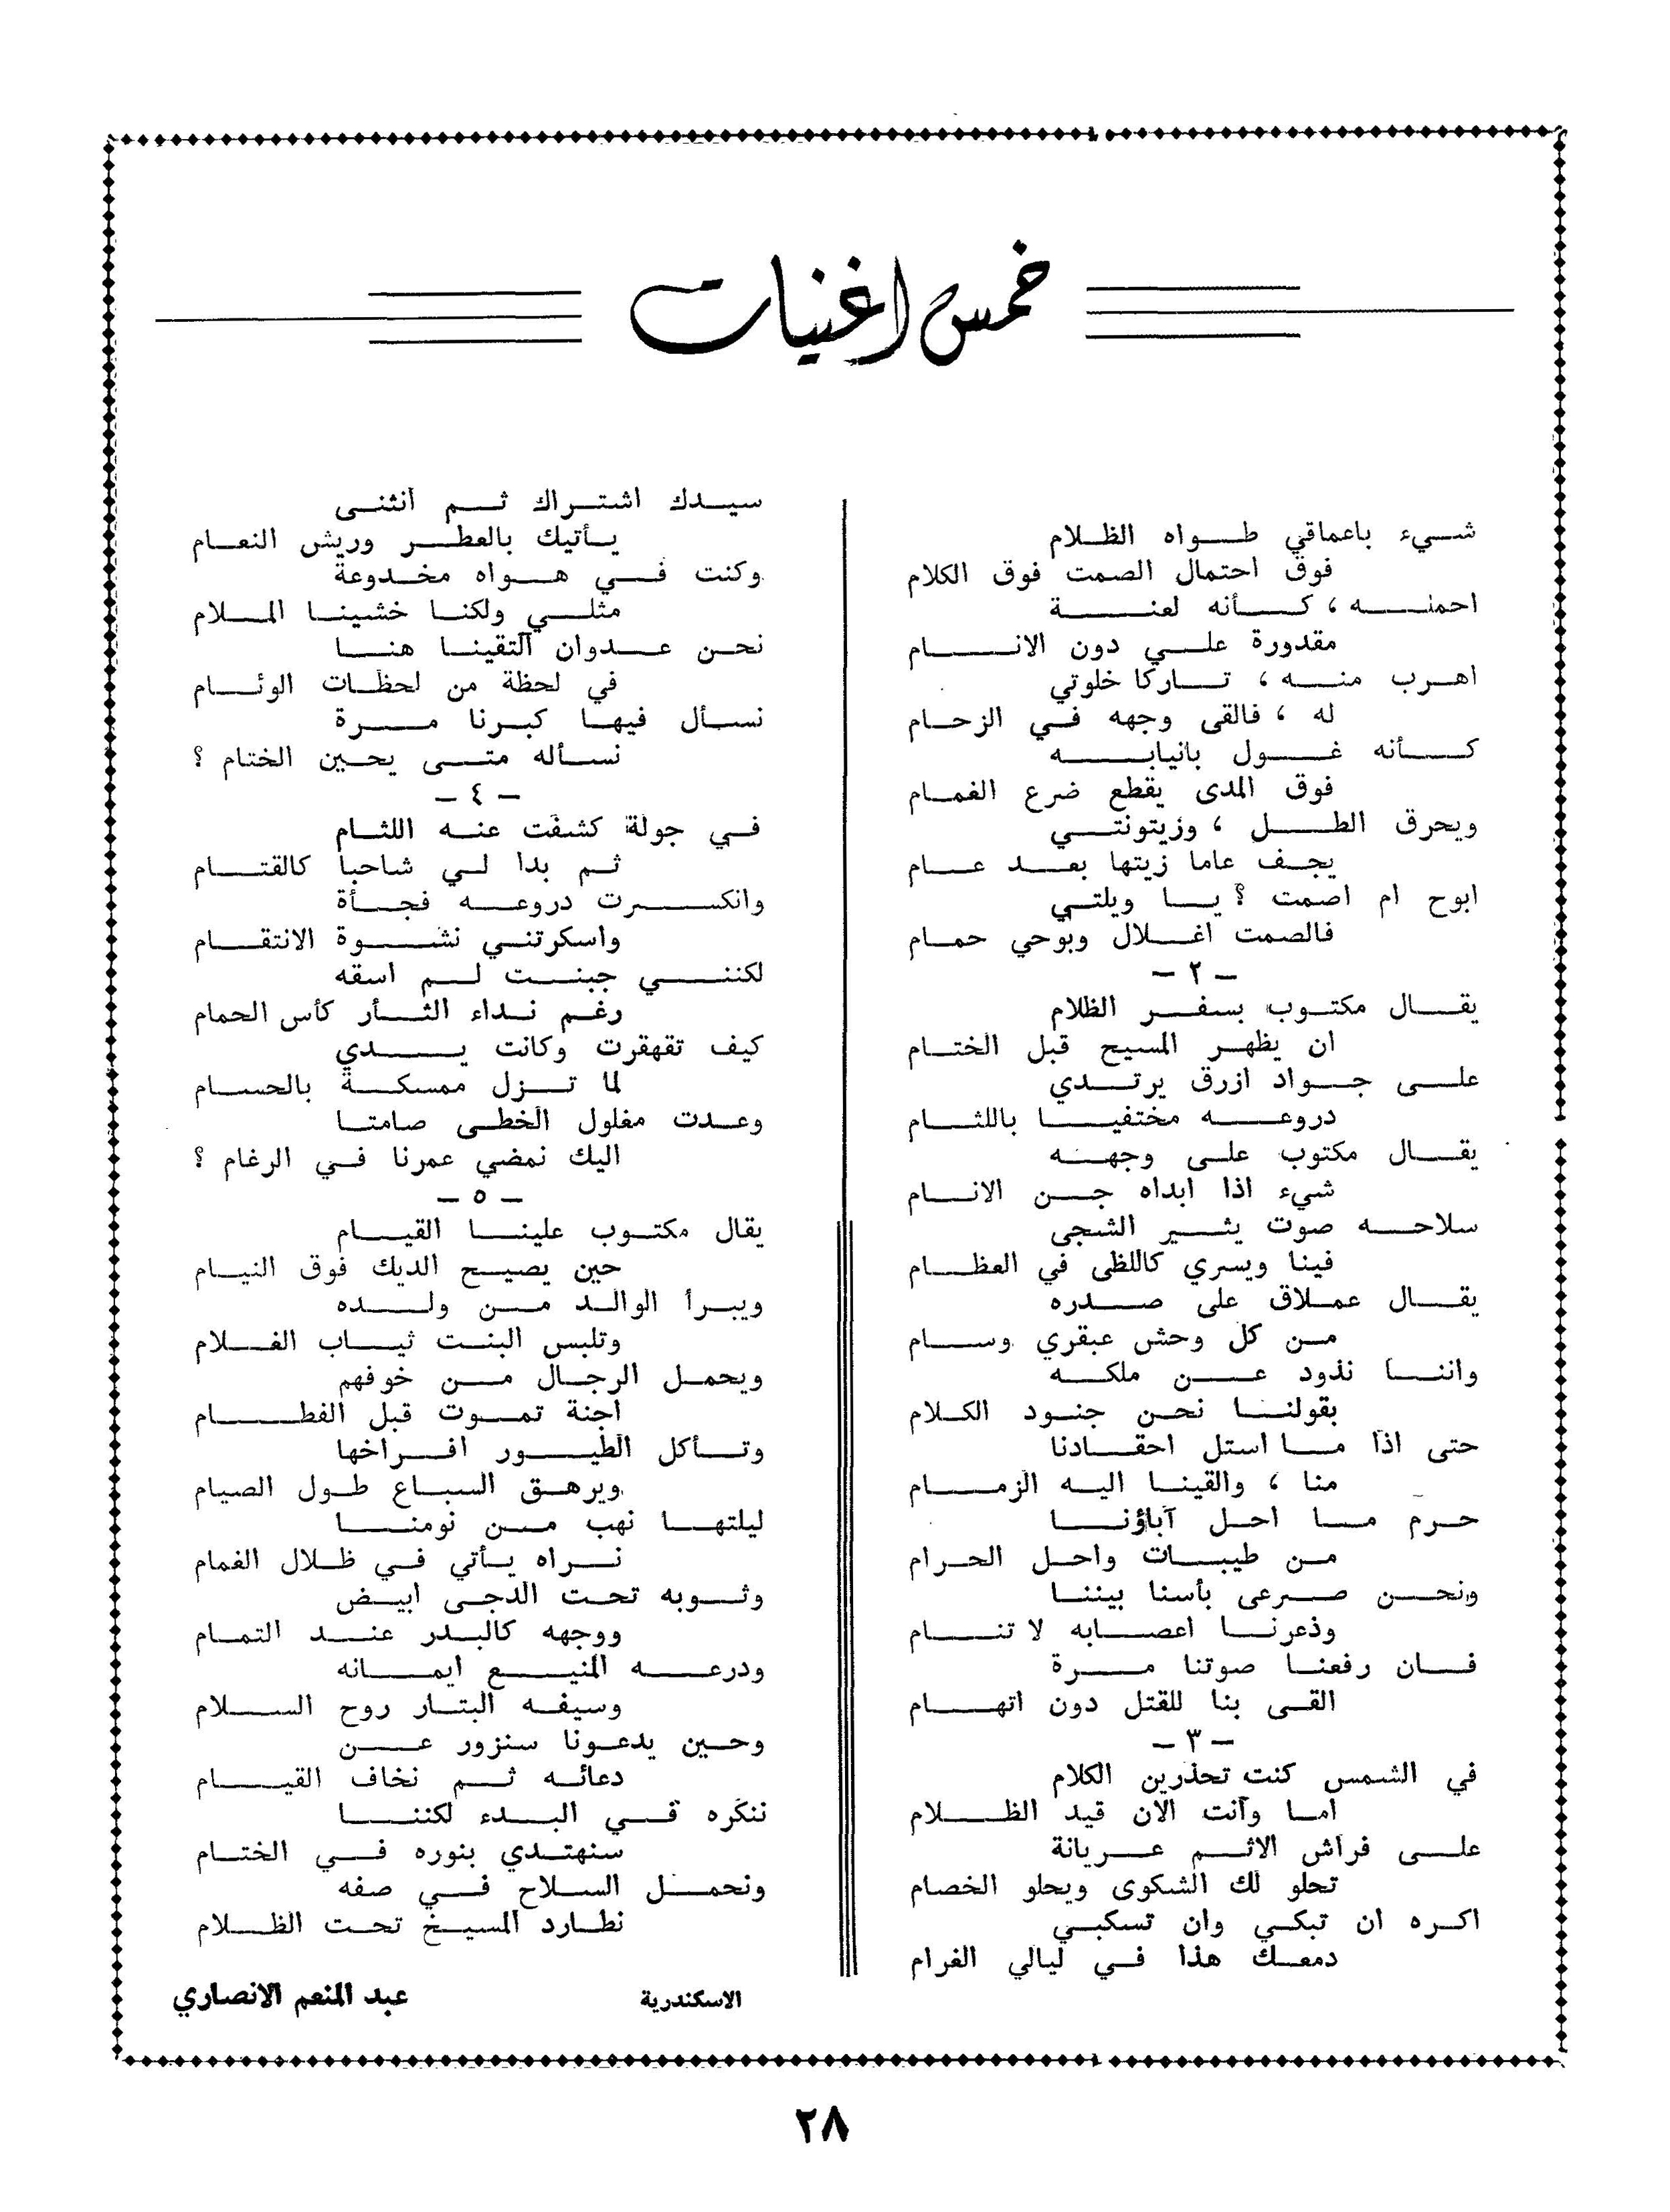 خمس اغنيات
شيء باعماقي طواه الظلام
فوق احتمال الصمت فوق الكلام
احمله ، كأنه لعنة
مقدورة علي دون الانام
اهرب منه ، تاركا خلوتي
له ، فالقى وجهه في الزحام
كأنه غول بانيابه
فوق المدى يقطع ضرع الغمام
ويحرق الطل ، وزيتونتي
يجف عاما زيتها بعد عام
ابوح ام اصمت ؟ يا ويلتي
فالصمت اغلال وبوحي حمام
– ٢ –
يقال مكتوب بسفر الظلام
ان يظهر المسيح قبل الختام
على جواد ازرق يرتدي
دروعه مختفيا باللثام
يقال مكتوب على وجهه
شيء اذا ابداه جن الانام
سلاحه صوت يثير الشجى
فينا ويسري كاللظى في العظام
يقال عملاق على صدره
من كل وحش عبقري وسام
واننا نذود عن ملكه
بقولنا نحن جنود الكلام
حتى اذا ما استل احقادنا
منا ، والقينا اليه الزمام
حرم ما احل آباؤنا
من طيبات واحل الحرام
ونحن صرعى بأسنا بيننا
وذعرنا اعصابه لا تنام
فان رفعنا صوتنا مرة
القى بنا للقتل دون اتهام
– ٣ –
في الشمس كنت تحذرين الكلام
أما وأنت الان قيد الظلام
على فراش الاثم عريانة
تحلو لك الشكوى ويحلو الخصام
اكره ان تبكي وان تسكبي
دمعك هذا في ليالي الغرام
سيدك اشتراك ثم انثنى
يأتيك بالعطر وريش النعام
وكنت في هواه مخدوعة
مثلي ولكنا خشينا الملام
نحن عدوان التقينا هنا
في لحظة من لحظات الوئام
نسأل فيها كبرنا مرة
نسأله متى يحين الختام ؟
– ٤ –
في جولة كشفت عنه اللثام
ثم بدا لي شاحبا كالقتام
وانكسرت دروعه فجأة
واسكرتني نشوة الانتقام
لكنني جبنت لم اسقه
رغم نداء الثأر كأس الحمام
كيف تقهقرت وكانت يدي
لما تزل ممسكة بالحسام
وعدت مغلول الخطى صامتا
اليك نمضي عمرنا في الرغام ؟
– ٥ –
يقال مكتوب علينا القيام
حين يصيح الديك فوق النيام
ويبرأ الوالد من ولده
وتلبس البنت ثياب الغلام
ويحمل الرجال من خوفهم
اجنة تموت قبل الفطام
وتأكل الطيور افراخها
ويرهق السباع طول الصيام
ليلتها نهب من نومنا
نراه يأتي في ظلال الغمام
وثوبه تحت الدجى ابيض
ووجهه كالبدر عند التمام
ودرعه المنيع ايمانه
وسيفه البتار روح السلام
وحين يدعونا سنزور عن
دعائه ثم نخاف القيام
ننكره في البدء لكننا
سنهتدي بنوره في الختام
ونحمل السلاح في صفه
نطارد المسيخ تحت الظلام
الاسكندرية
عبد المنعم الانصاري
٢٨